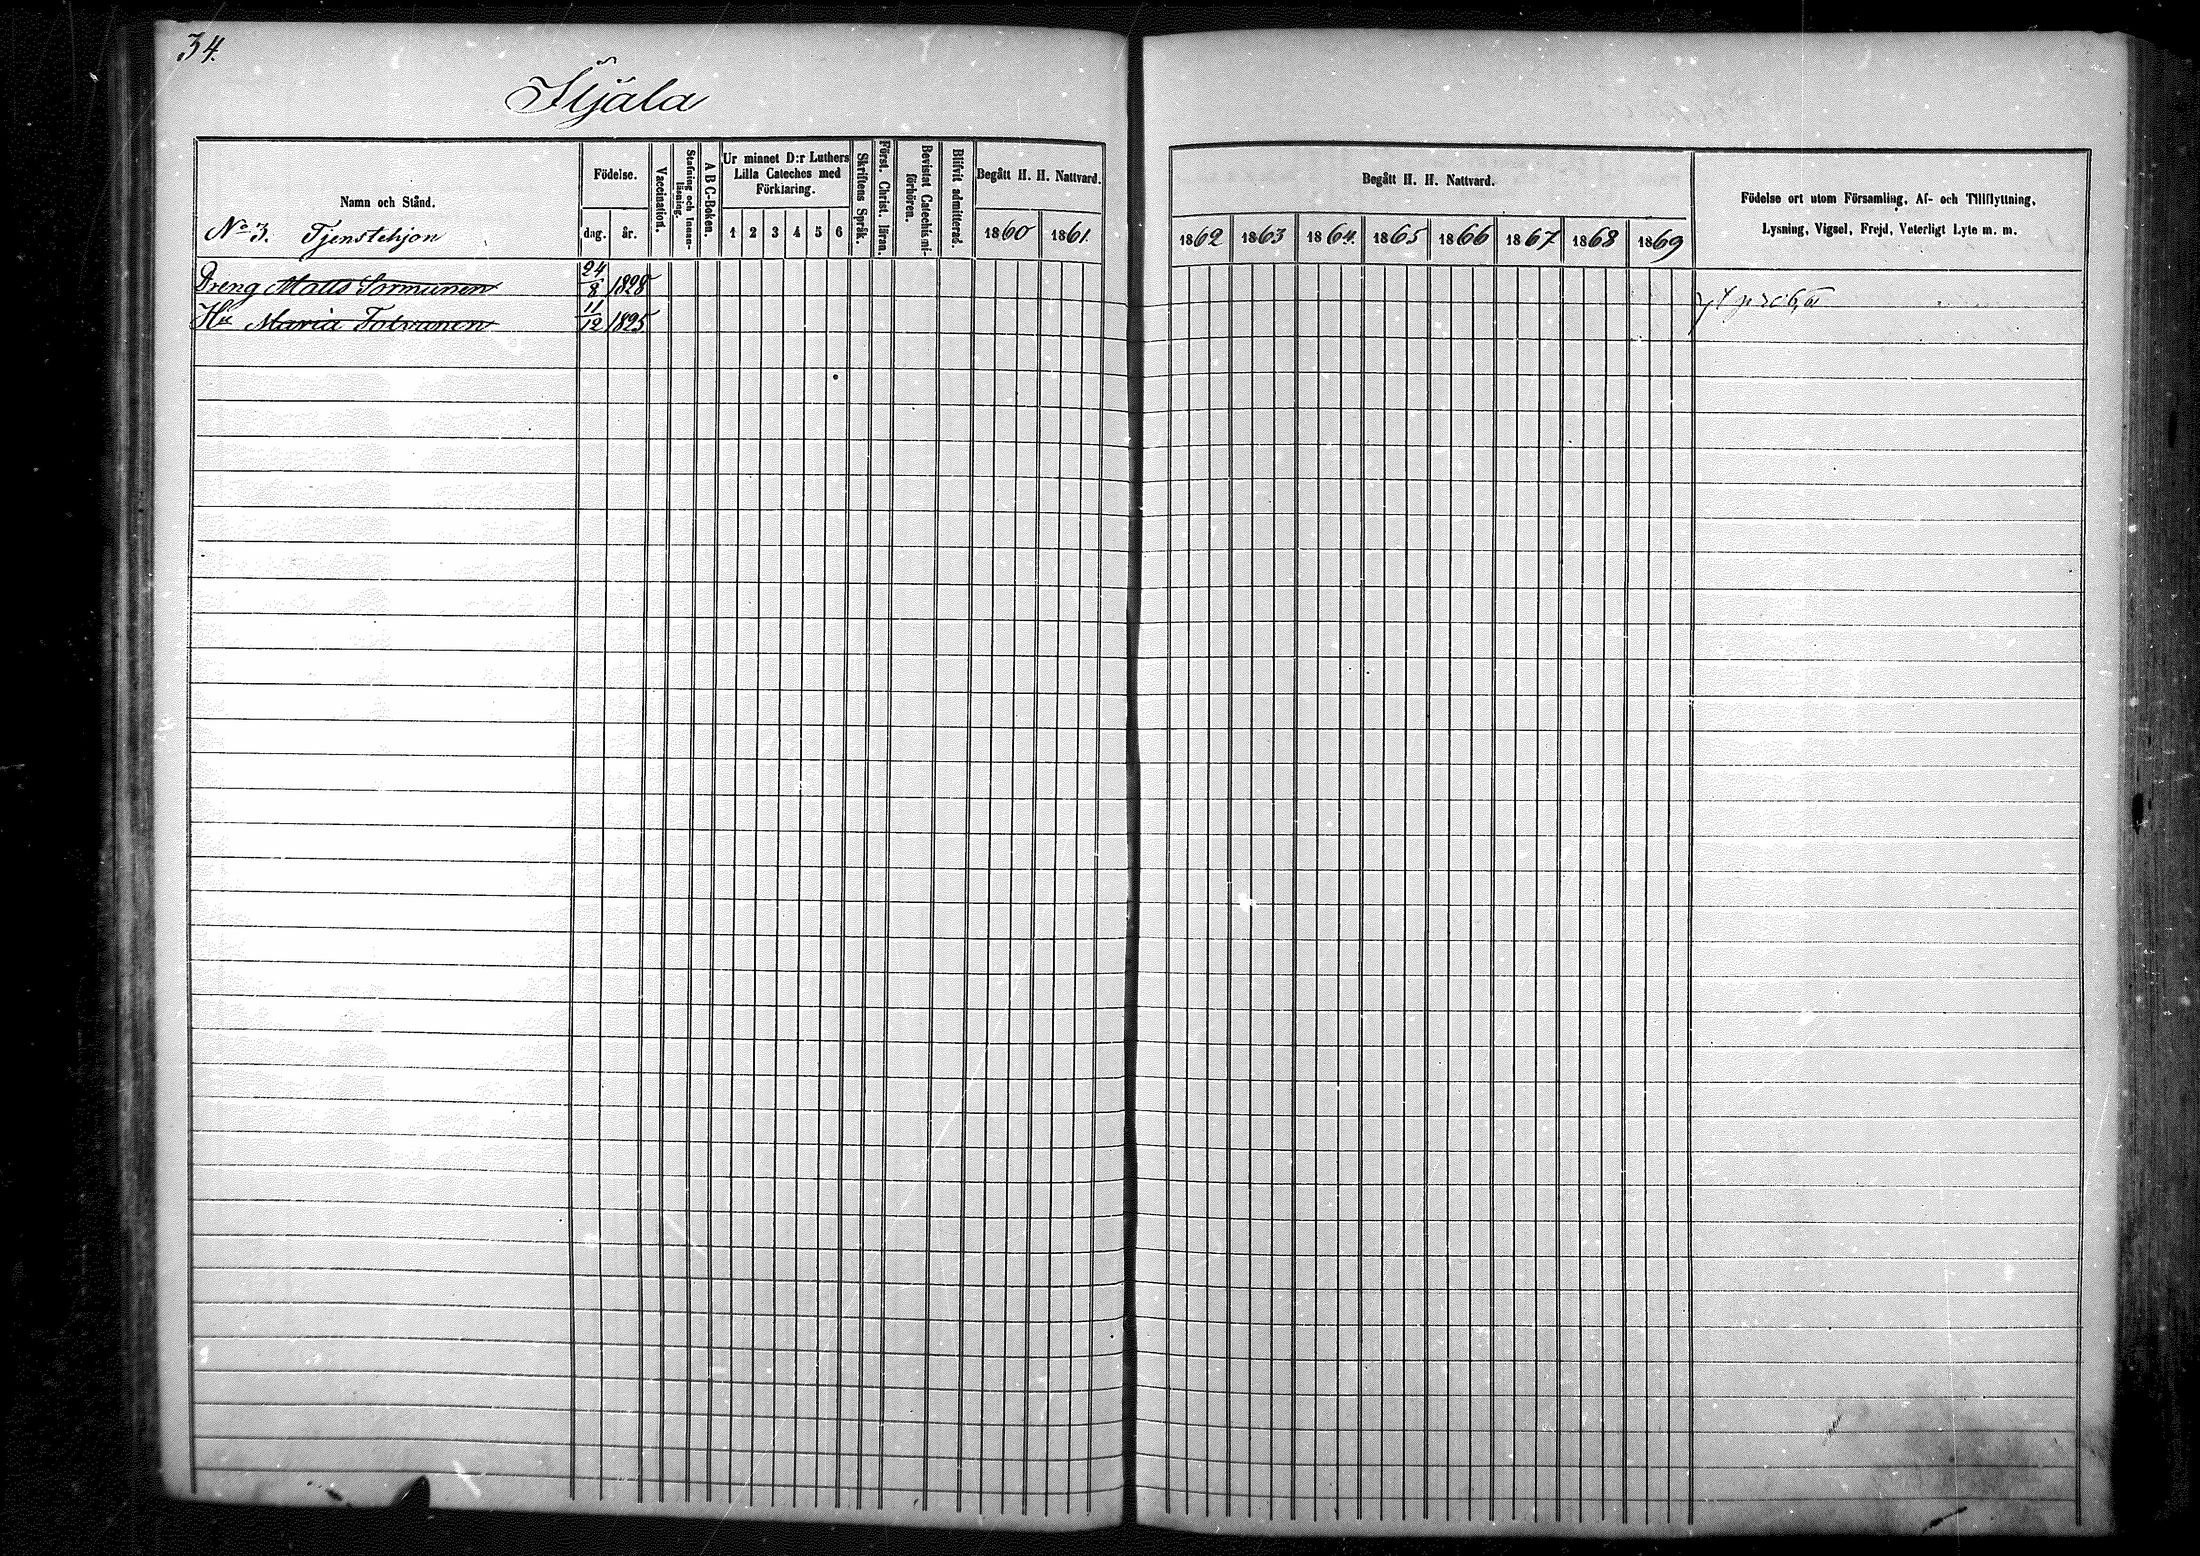 34.
Namn och Stånd.
No 3. Tjenstehjon
Födelse.
dag. år.
Vaccination.
Stafning och Innan-läsning.
A B C-Boken.
Ur minnet D:r Luthers
Lilla Cateches med
Förklaring.
1 2 3 4 5 6
Skriftens Språk.
Först. Christ. läran.
Bevistat Catechismi-förhören.
Blifvit admitterad.
Begått H. H. Nattvard.
1860 1861.
Begått H. H. Nattvard.
1862 1863 1864. 1865 1866 1867 1868 1869
Födelse ort utom Församling, Af- och Tillflyttning,
Lysning, Vigsel, Frejd, Veterligt Lyte m. m.
Dreng Matts Sormunen 24/8 1828
Hu Maria Tolvanen 11/12 1825